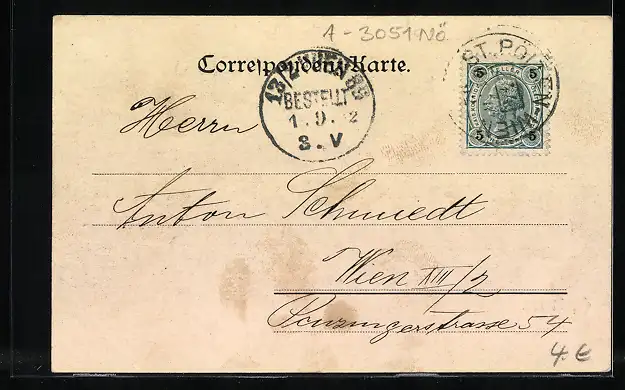 A-3051 NÖ
Correspondenz-Karte.
13/2 WIEN 88
BESTELLT
1.9.2
3.V
ST. PÖLTEN-
5 5
5 5
Herrn
Anton Schmiedt
Wien XIII/2
Penzingerstrasse 54
4.€